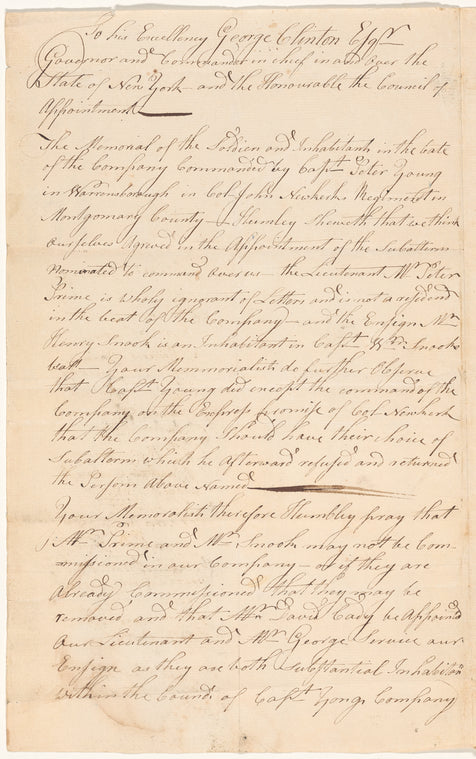 To his Excellency George Clinton Esqr
Governor and Commander in chief in and over the
State of New York and the Honourable the Council of
Appointment
The Memorial of the Soldiers and Inhabitants in the beate
of the Company Commanded by Capt Peter Young
in Warrensborough in Col John Newkerks Regiment in
Montgomary County – Humley Sheweth that we think
ourselves Agreved in the Appointment of the Subalterns
nominated to command over us – the Lieutenant Mr Peter
Prime is wholy ignorant of Letters and is not a resident
in the beat of the Company – and the Ensign Mr
Henry Snook is an Inhabitant in Capt Wm Snooks
beat – Your Memmorialists do further Observe
that Capt Young did except the command of the
Company on the Express promise of Col Newkerk
that the Company Should have their choice of
Subalterns which he afterward refused and returned
the Persons Above Named
Your Memoralists therefore Humbley pray that
Mr Prime and Mr Snook may not be Com-
missioned in our Company – or if they are
already Commissioned that they may be
removed and that Mr David Eady be Appointd
our Lieutenant and Mr George Service our
Ensign as they are both Substantial Inhabitan
within the bounds of Capt Yongs Company